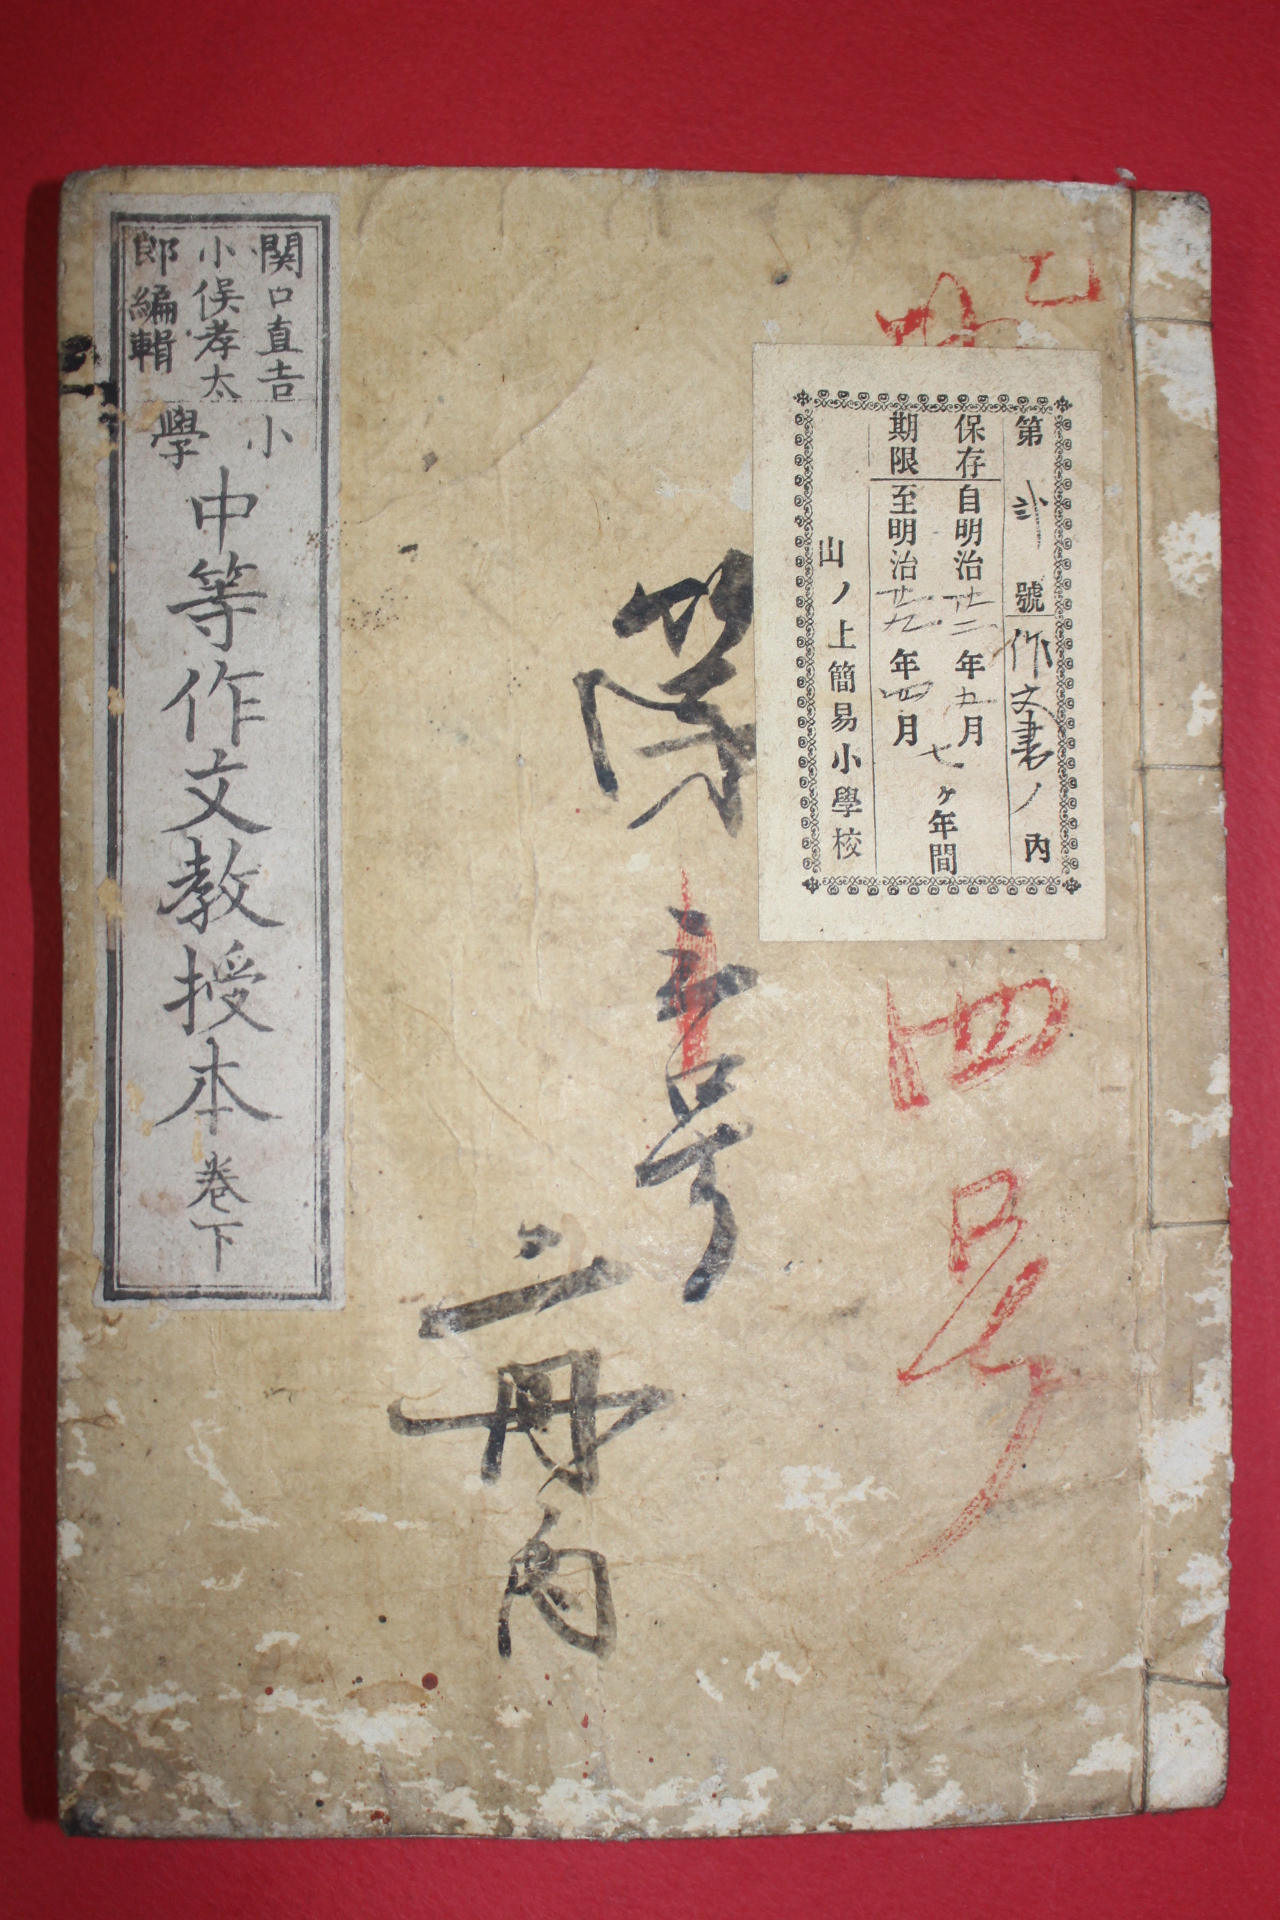 第貳號作文書ノ内
保存期限
自明治廿二年五月
至明治廿九年四月
七ヶ年間
山ノ上簡易小學校
乙
四号
第
号
二冊内
関口直吉
小俣孝太
郎編輯
小學
中等作文教授本巻下